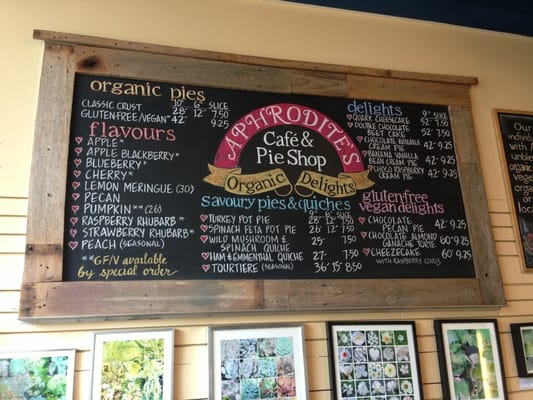 organic pies
10" 6" SLICE
CLASSIC CRUST 28- 12- 7.50
GLUTEN-FREE/VEGAN* 42- 9.25
flavours
APPLE*
APPLE BLACKBERRY*
BLUEBERRY*
CHERRY*
LEMON MERINGUE (30)
PECAN
PUMPKIN** (26)
RASPBERRY RHUBARB**
STRAWBERRY RHUBARB*
PEACH (SEASONAL)
**GF/V available
by special order
APHRODITE'S
Café &
Pie Shop
Organic Delights
savoury pies & quiches
9" 6" SLICE
TURKEY POT PIE 28- 12- 7.50
SPINACH FETA POT PIE 26- 12- 7.50
WILD MUSHROOM &
SPINACH QUICHE 25- 7.50
HAM & EMMENTHAL QUICHE 27- 7.50
TOURTIERE (SEASONAL) 36- 15- 8.50
delights
9" SLICE
QUARK CHEESECAKE 52- 7.50
DOUBLE CHOCOLATE
BEET CAKE 52- 7.50
CHOCOLATE BANANA
CREAM PIE 42- 9.25
BANANA VANILLA
BEAN CREAM PIE 42- 9.25
CHOCO RASPBERRY
CREAM PIE 42- 9.25
glutenfree
vegan delights
CHOCOLATE
PECAN PIE 42- 9.25
CHOCOLATE ALMOND
GANACHE TORTE 60- 9.25
CHEEZECAKE 60- 9.25
WITH RASPBERRY COULIS
Our